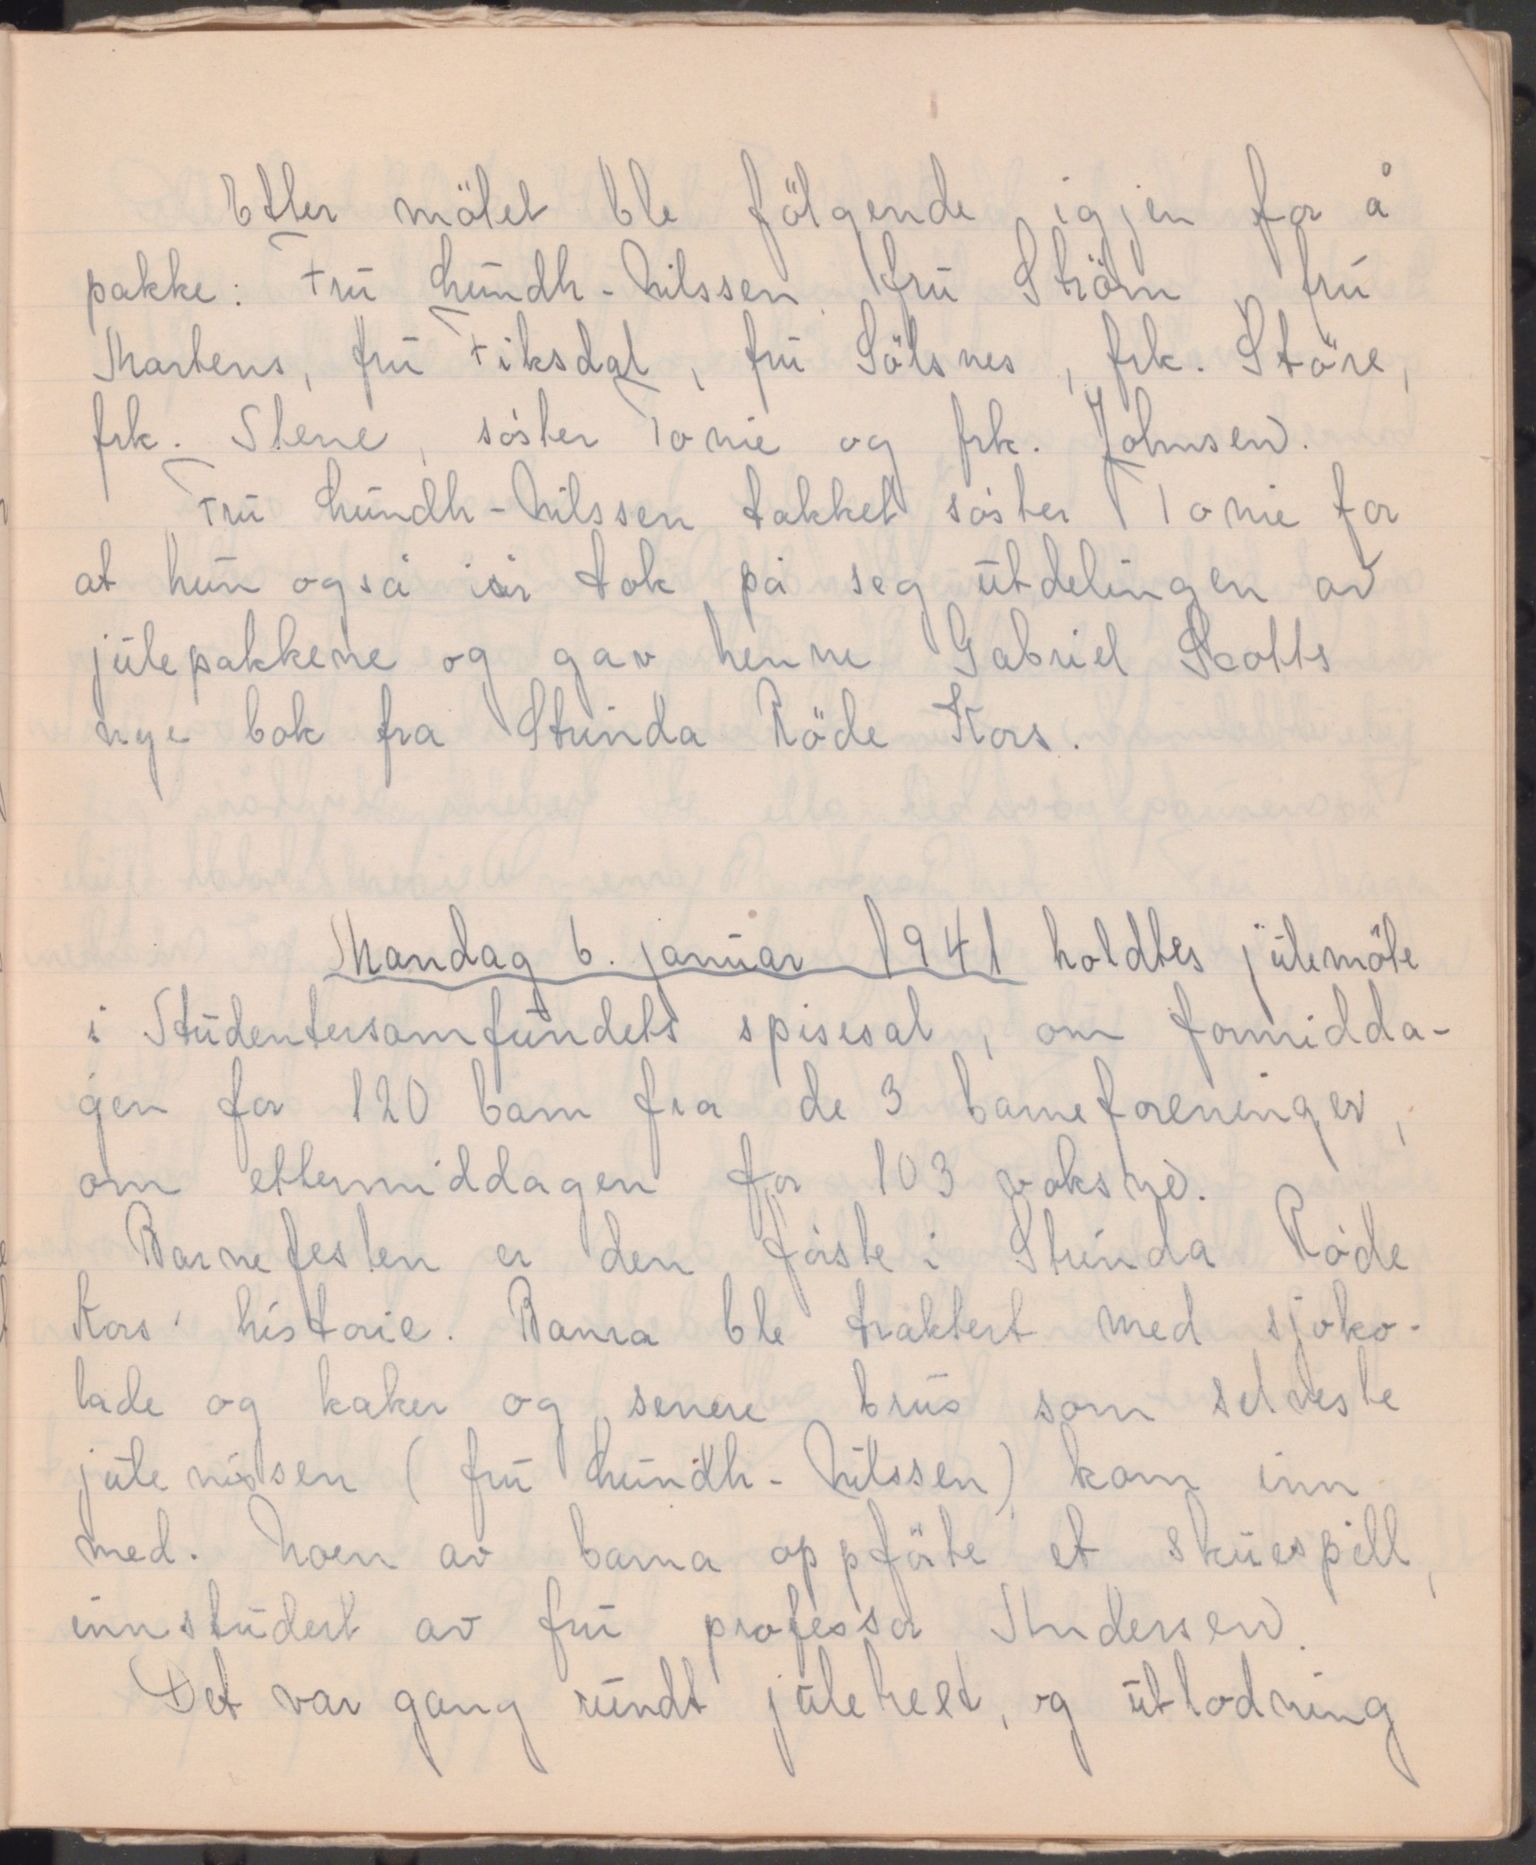 Etter mötet ble fölgende igjen for å
pakke: Fru Lundh-Nilssen, fru Ström, fru
Martens, fru Fiksdal, fru Sölsnes, frk. Störe,
frk. Stene, söster Tonie og frk. Johnsen.
Fru Lundh-Nilssen takket söster Tonie for
at hun også i år tok på seg utdelingen av
julepakkene og gav henne Gabriel Scotts
nye bok fra Strinda Röde Kors.
Mandag 6. januar 1941 holdtes julemöte
i Studentersamfundets spisesal, om formidda-
gen for 120 barn fra de 3 barneforeninger,
om ettermiddagen for 103 voksne.
Barnefesten er den förste i Strinda Röde
Kors' historie. Barna ble traktert med sjoko-
lade og kaker og senere brus som selveste
julenissen (fru Lundh-Nilssen) kom inn
med. Noen av barna oppförte et skuespill,
innstudert av fru professor Andersen.
Det var gang rundt juletreet, og utlodning